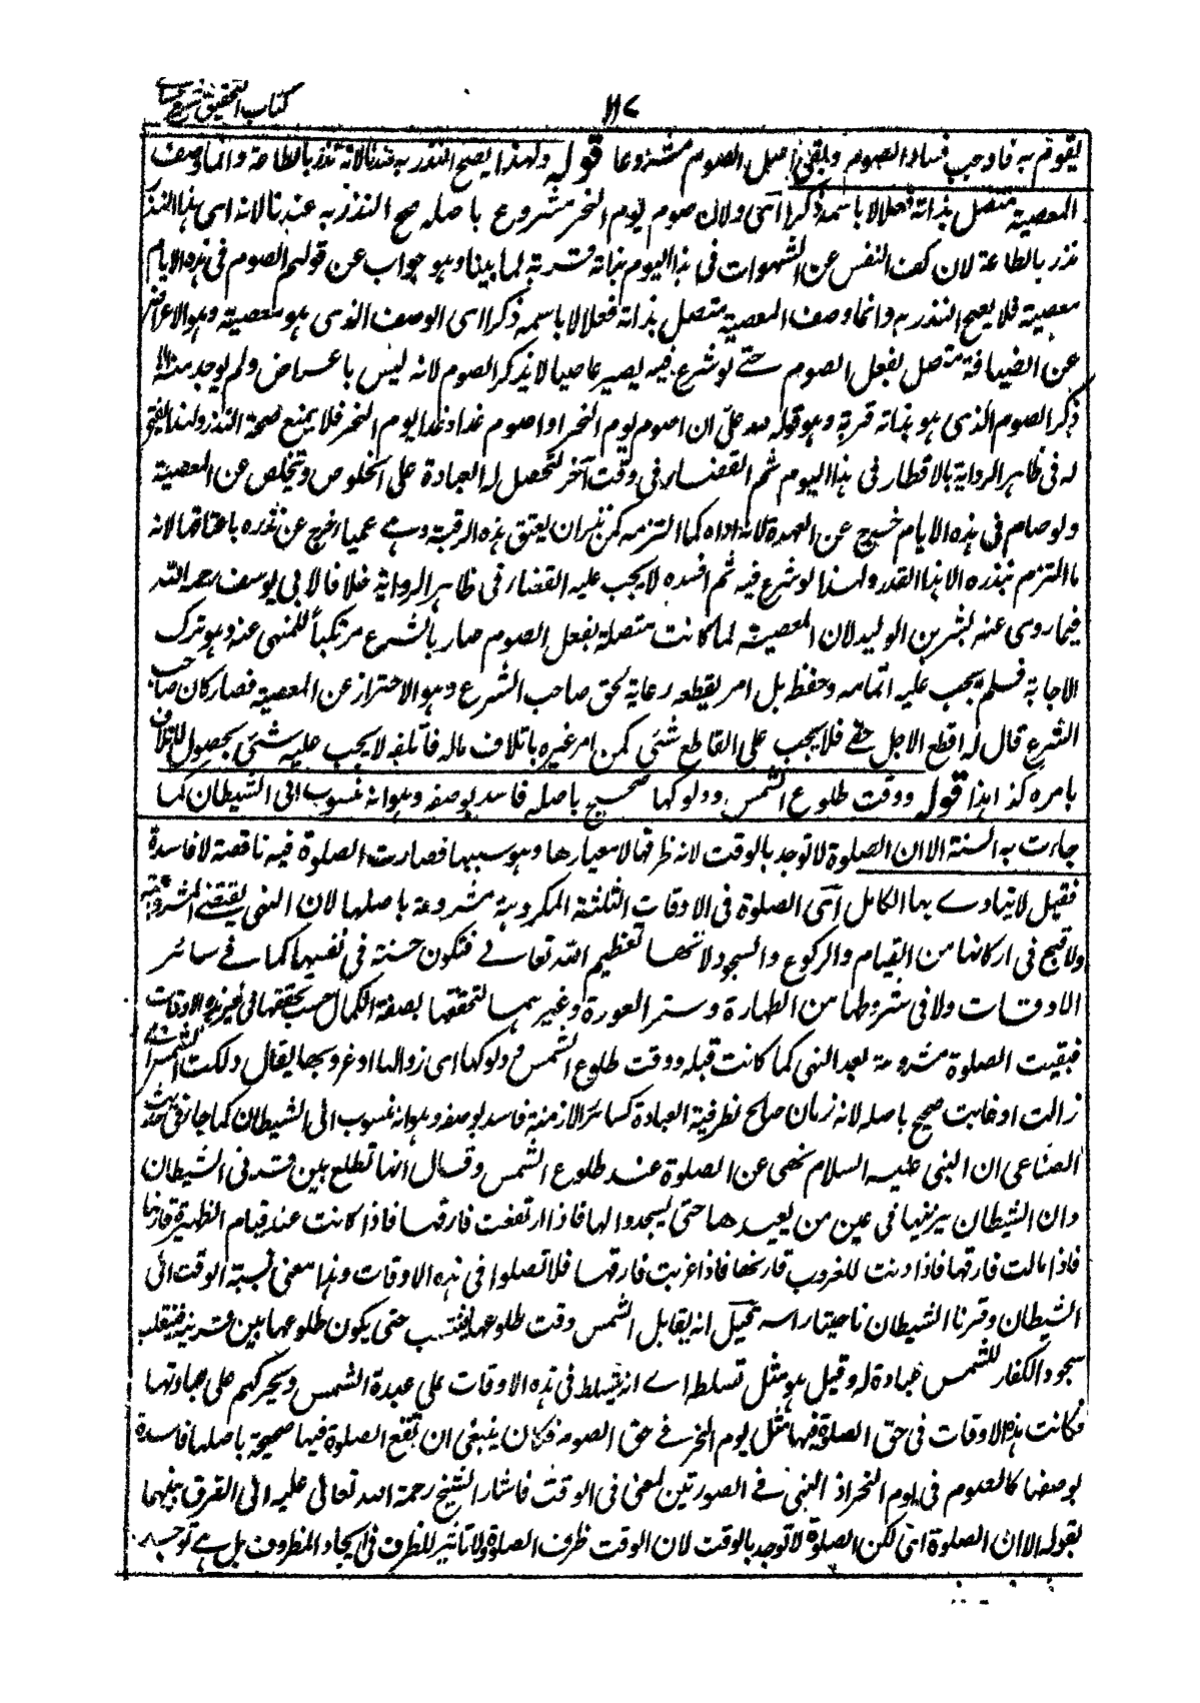 ١١٧
كتاب التحقيق شرح حسامي
يقوم به فاوجب فساد الصوم ويبقى اصل الصوم مشروعا قوله ولهذا يصح النذر به عندنا لانه نذر بالطاعة وانما وصف
المعصية متصل بذاته فعلا لا باسمه ذكرا اى ولان صوم يوم النحر مشروع باصله صح النذر به عندنا لانه اى هذا النذر
نذر بالطاعة لان كف النفس عن الشهوات فى هذا اليوم بذاته قربة لما بينا وهو جواب عن قولهم الصوم فى هذه الايام
معصية فلا يصح النذر به وانما وصف المعصية متصل بذاته فعلا لا باسمه ذكرا اى الوصف الذى هو معصية وهو الاعراض
عن الضيافة متصل بفعل الصوم حتے لو شرع فيه يصير عاصيا لا بذكر الصوم لانه ليس باعراض ولم يوجد منه الا
ذكر الصوم الذى هو بذاته قربة وهو قوله لله علىّ ان اصوم يوم النحر او اصوم غدا وغدا يوم النحر فلا يمنع صحة النذر ولهذا يفتى
له فى ظاهر الرواية بالافطار فى هذا اليوم ثم القضاء فى وقت آخر لتحصل له العبادة على الخلوص ويتخلص عن المعصية
ولو صام فى هذه الايام خرج عن العهدة لانه اداه كما التزمه كمن نذر ان يعتق هذه الرقبة وهى عمياء خرج عن نذره باعتاقها لانه
ما التزم بنذره الا هذا القدر ولهذا لو شرع فيه ثم افسده لا يجب عليه القضاء فى ظاهر الرواية خلافا لابى يوسف رحمه الله
فيما روى عنه بشر بن الوليد لان المعصية لما كانت متصلة بفعل الصوم صار بالشرع مرتكباً للمنهى عنه وهو ترك
الاجابة فلم يجب عليه اتمامه وحفظه بل امر بقطعه رعاية لحق صاحب الشرع وهو الاحتراز عن المعصية فصار كان صاحب
الشرع قال له اقطع لاجل حقے فلا يجب على القاطع شئى كمن امر غيره باتلاف ماله فاتلفه لا يجب عليه شئى بحصول الاتلاف
بامره كذا هذا قوله ووقت طلوع الشمس ودلوكها صحيح باصله فاسد بوصفه وهو انه منسوب الى الشيطان كما
جاءت به السنة الا ان الصلوة لا توجد بالوقت لانه ظرفها لا معيارها وهو سببها فصارت الصلوة فيه ناقصة لا فاسدة
فقيل لا يتادے بها الكامل اى الصلوة فى الاوقات الثلثة المكروهة مشروعة باصلها لان النهى يقتضے المشروعية
ولا قبح فى اركانها من القيام والركوع والسجود لانها تعظيم الله تعالے فتكون حسنة فى نفسها كما فے سائر
الاوقات ولا فى شروطها من الطهارة وستر العورة وغيرهما لتحققها بصفة الكمال حسب تحققها فى غير هذه الاوقات
فبقيت الصلوة مشروعة بعد النهى كما كانت قبله ووقت طلوع الشمس ودلوكها اى زوالها او غروبها يقال دلكت الشمس اذا
زالت او غابت صحيح باصله لانه زمان صالح لظرفية العبادة كسائر الازمنة فاسد بوصفه وهو انه منسوب الى الشيطان كما جاء فى حديث
الصنابحى ان النبى عليه السلام نهى عن الصلوة عند طلوع الشمس وقال انها تطلع بين قرنى الشيطان
وان الشيطان يزينها فى عين من يعبدها حتى يسجدوا لها فاذا ارتفعت فارقها فاذا كانت عند قيام الظهيرة قارنها
فاذا مالت فارقها فاذا دنت للغروب قارنها فاذا غربت فارقها فلا تصلوا فى هذه الاوقات وهذا معنى نسبة الوقت الى
الشيطان وقرنا الشيطان ناحيتا راسه قيل انه يقابل الشمس وقت طلوعها فينتصب حتى يكون طلوعها بين قرنيه فينقلب
سجود الكفار للشمس عبادة له وقيل هو مثل تسلطه اے انه يتسلط فى هذه الاوقات على عبدة الشمس ويحركهم على عبادتها
فكانت هذه الاوقات فى حق الصلوة فيها مثل يوم النحر فے حق الصوم فكان ينبغى ان تقع الصلوة فيها صحيحة باصلها فاسدة
بوصفها كالصوم فى يوم النحر اذ النهى فے الصورتين لمعنى فى الوقت فاشار الشيخ رحمة الله تعالى عليه الى الفرق بينهما
بقوله الا ان الصلوة اى لكن الصلوة لا توجد بالوقت لان الوقت ظرف الصلوة ولا تاثير للظرف فى ايجاد المظروف بل هے توجد